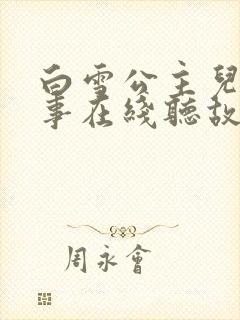 白雪公主兒
事在綫聽故
周永會